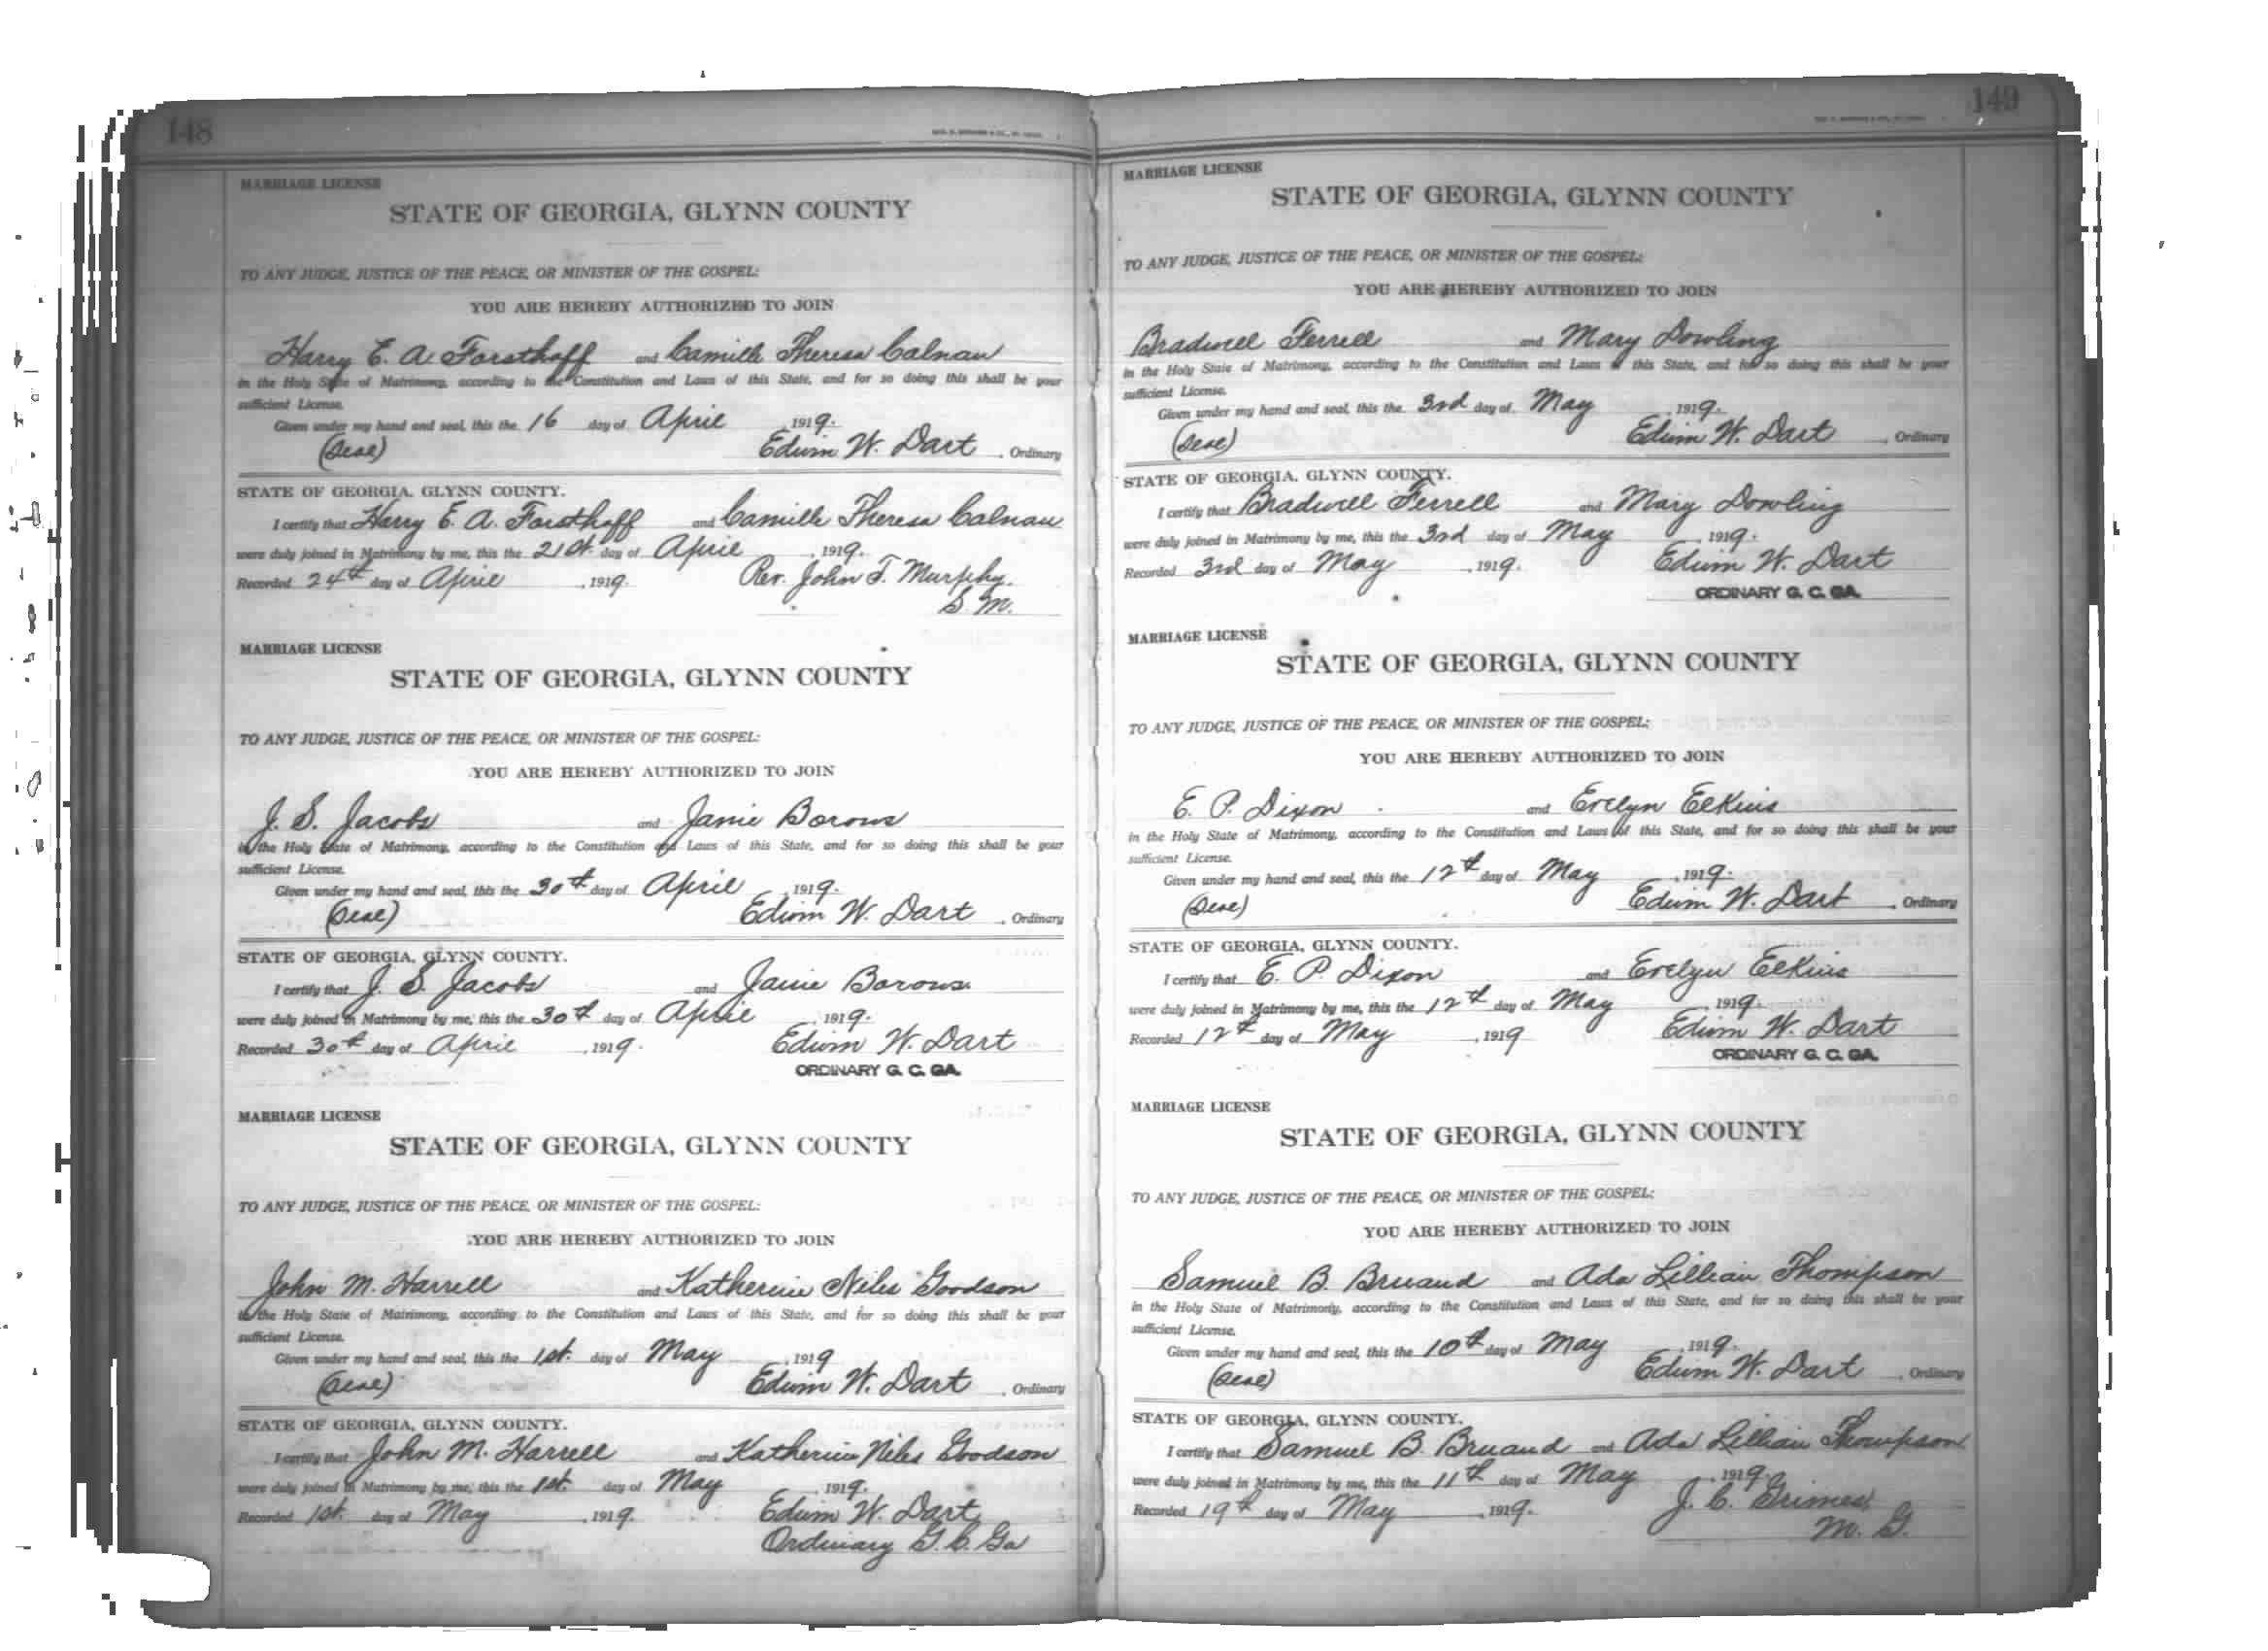 148
MARRIAGE LICENSE
STATE OF GEORGIA, GLYNN COUNTY
TO ANY JUDGE, JUSTICE OF THE PEACE, OR MINISTER OF THE GOSPEL:
YOU ARE HEREBY AUTHORIZED TO JOIN
Harry E. A. Forsthoff and Camille Theresa Calnan
in the Holy State of Matrimony, according to the Constitution and Laws of this State, and for so doing this shall be your
sufficient License.
Given under my hand and seal, this the 16 day of April, 1919.
(Seal) Edwin W. Dart, Ordinary
STATE OF GEORGIA, GLYNN COUNTY.
I certify that Harry E. A. Forsthoff and Camille Theresa Calnan
were duly joined in Matrimony by me, this the 21st. day of April, 1919.
Recorded 24th day of April, 1919. Rev. John T. Murphy.
S. M.
MARRIAGE LICENSE
STATE OF GEORGIA, GLYNN COUNTY
TO ANY JUDGE, JUSTICE OF THE PEACE, OR MINISTER OF THE GOSPEL:
YOU ARE HEREBY AUTHORIZED TO JOIN
J. S. Jacobs and Janie Borows
in the Holy State of Matrimony, according to the Constitution and Laws of this State, and for so doing this shall be your
sufficient License.
Given under my hand and seal, this the 30th day of April, 1919.
(Seal) Edwin W. Dart, Ordinary
STATE OF GEORGIA, GLYNN COUNTY.
I certify that J. S. Jacobs and Janie Borows
were duly joined in Matrimony by me, this the 30th day of April, 1919.
Recorded 30th day of April, 1919. Edwin W. Dart
ORDINARY G. C. GA.
MARRIAGE LICENSE
STATE OF GEORGIA, GLYNN COUNTY
TO ANY JUDGE, JUSTICE OF THE PEACE, OR MINISTER OF THE GOSPEL:
YOU ARE HEREBY AUTHORIZED TO JOIN
John M. Harrell and Katherine Niles Goodson
in the Holy State of Matrimony, according to the Constitution and Laws of this State, and for so doing this shall be your
sufficient License.
Given under my hand and seal, this the 1st. day of May, 1919
(Seal) Edwin W. Dart, Ordinary
STATE OF GEORGIA, GLYNN COUNTY.
I certify that John M. Harrell and Katherine Niles Goodson
were duly joined in Matrimony by me, this the 1st. day of May, 1919.
Recorded 1st. day of May, 1919. Edwin W. Dart,
Ordinary G. C. Ga
149
MARRIAGE LICENSE
STATE OF GEORGIA, GLYNN COUNTY
TO ANY JUDGE, JUSTICE OF THE PEACE, OR MINISTER OF THE GOSPEL:
YOU ARE HEREBY AUTHORIZED TO JOIN
Bradwell Ferrell and Mary Dowling
in the Holy State of Matrimony, according to the Constitution and Laws of this State, and for so doing this shall be your
sufficient License.
Given under my hand and seal, this the 3rd day of May, 1919.
(Seal) Edwin W. Dart, Ordinary
STATE OF GEORGIA, GLYNN COUNTY.
I certify that Bradwell Ferrell and Mary Dowling
were duly joined in Matrimony by me, this the 3rd day of May, 1919.
Recorded 3rd day of May, 1919. Edwin W. Dart
ORDINARY G. C. GA.
MARRIAGE LICENSE
STATE OF GEORGIA, GLYNN COUNTY
TO ANY JUDGE, JUSTICE OF THE PEACE, OR MINISTER OF THE GOSPEL:
YOU ARE HEREBY AUTHORIZED TO JOIN
E. P. Dixon and Evelyn Elkins
in the Holy State of Matrimony, according to the Constitution and Laws of this State, and for so doing this shall be your
sufficient License.
Given under my hand and seal, this the 12th day of May, 1919.
(Seal) Edwin W. Dart, Ordinary
STATE OF GEORGIA, GLYNN COUNTY.
I certify that E. P. Dixon and Evelyn Elkins
were duly joined in Matrimony by me, this the 12th day of May, 1919.
Recorded 12th day of May, 1919 Edwin W. Dart
ORDINARY G. C. GA.
MARRIAGE LICENSE
STATE OF GEORGIA, GLYNN COUNTY
TO ANY JUDGE, JUSTICE OF THE PEACE, OR MINISTER OF THE GOSPEL:
YOU ARE HEREBY AUTHORIZED TO JOIN
Samuel B. Bruand and Ada Lillian Thompson
in the Holy State of Matrimony, according to the Constitution and Laws of this State, and for so doing this shall be your
sufficient License.
Given under my hand and seal, this the 10th day of May, 1919.
(Seal) Edwin W. Dart, Ordinary
STATE OF GEORGIA, GLYNN COUNTY.
I certify that Samuel B. Bruand and Ada Lillian Thompson
were duly joined in Matrimony by me, this the 11th day of May, 1919.
Recorded 19th day of May, 1919. J. C. Grimes,
M. G.